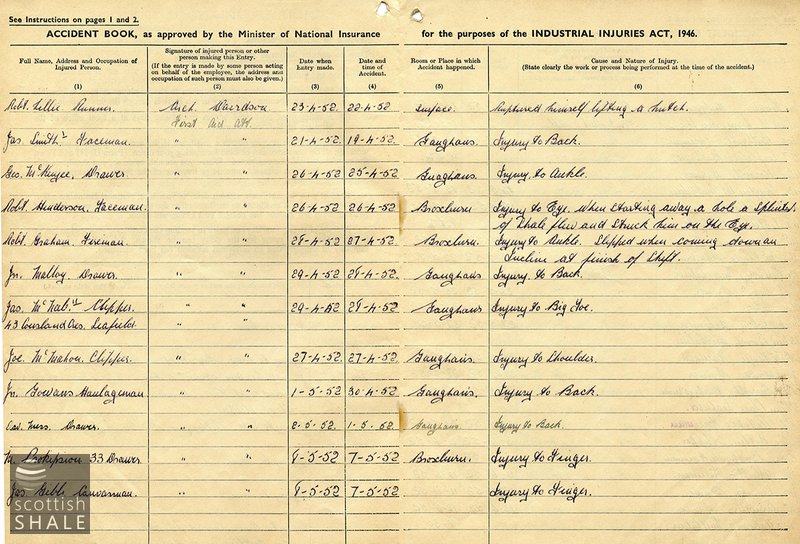 See Instructions on pages 1 and 2.
ACCIDENT BOOK, as approved by the Minister of National Insurance for the purposes of the INDUSTRIAL INJURIES ACT, 1946.
Full Name, Address and Occupation of Injured Person.
(1)
Signature of injured person or other person making this Entry.
(If the entry is made by some person acting on behalf of the employee, the address and occupation of such person must also be given.)
(2)
Date when Entry made.
(3)
Date and time of Accident.
(4)
Room or Place in which Accident happened.
(5)
Cause and Nature of Injury.
(State clearly the work or process being performed at the time of the accident.)
(6)
Robt. Lillie Runner. Arch. Davidson 23-4-52. 22-4-52 Surface. Ruptured himself lifting a hutch.
First Aid Att.
Jas. Smith Faceman. " " 21-4-52 19-4-52 Gaughans. Injury to Back.
Geo. Drawer " " 26-4-52 25-4-52 Guaghans. Injury to Ankle.
Robt. Henderson, Faceman. " " 26-4-52 26-4-52 Broxburn Injury to Eye. When starting away a hole a splinter
of Shale flew and struck him on the Eye.
Robt. Graham, Fireman. " " 28-4-52 27-4-52 Broxburn. Injury to Ankle. Slipped when coming down an
Incline at finish of Shift.
Jn. Malloy Drawer. " " 29-4-52 28-4-52 Gaughans Injury to Back.
Jas. McNab. Clipper. " " 29-4-52 28-4-52 Gaughans Injury to Big Toe.
43 Cousland Cres. Seafield. " "
Joe. McMahon, Clipper. " " 27-4-52 27-4-52. Gaughans. Injury to Shoulder.
Jn. Gowans Haulageman " " 1-5-52 30-4-52 Gaughans. Injury to Back.
Drawer. " " 2-5-52 1-5-52 Gaughans. Injury to Back.
33 Drawer " " 8-5-52 7-5-52 Broxburn. Injury to Finger.
Jas. Gibb. Canvasman. " " 8-5-52 7-5-52 Injury to Finger.
scottish
SHALE